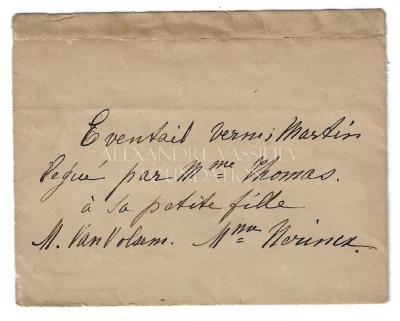 Eventail vernis Martin
ALEXANDRE VASSILIEV
FOUNDATION
légué par Mme Thomas.
à sa petite fille
M. Van Volsem. Mme